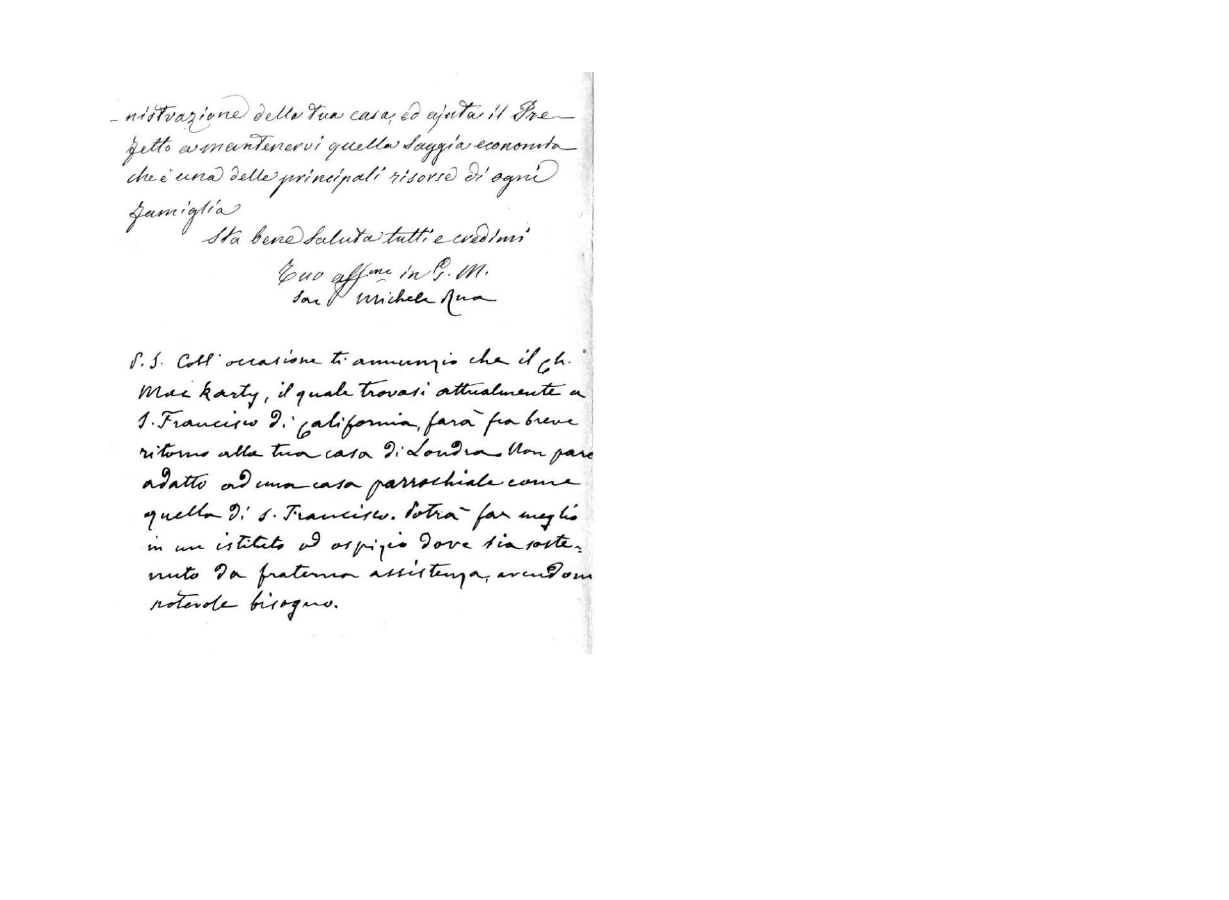 -nistrazione della tua casa, ed ajuta il Pre-
fetto a mantenervi quella saggia economia
che è una delle principali risorse di ogni
famiglia
Sta bene saluta tutti e credimi
Tuo aff.mo in G. M.
Sac Michele Rua
P. S. Coll' occasione ti annunzio che il Ch.
Mac Karty, il quale trovasi attualmente a
S. Francisco di California, farà fra breve
ritorno alla tua casa di Londra. Non pare
adatto ad una casa parrochiale come
quella di S. Francisco. Potrà far meglio
in un istituto od ospizio dove sia soste=
nuto da fraterna assistenza, avendone
notevole bisogno.